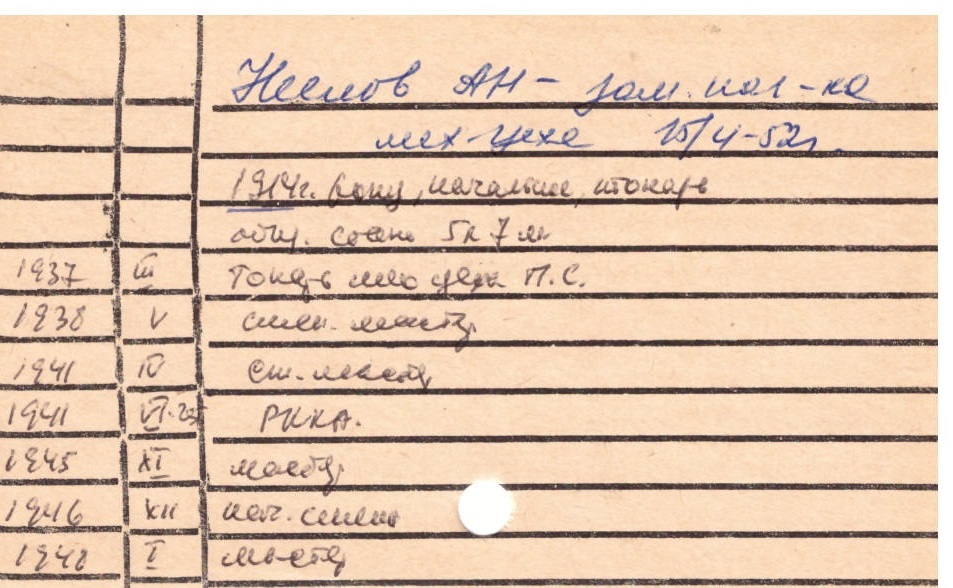 Неелов АН - зам. нач-ка
мех-цеха 15/4-52г.
1914г. рожд, начальн, токарь
общ. стаж 5л 7м
1937 III Токарь мех цеха П.С.
1938 V смен. мастер
1941 IV ст. мастер
1941 VI-25 РККА.
1945 XI мастер
1946 XII нач. смены
1948 I мастер